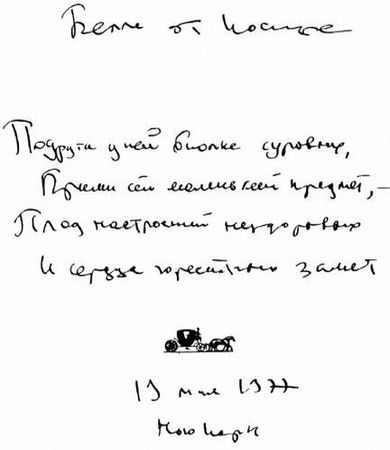 Белле от Иосифа
Подруга дней вполне суровых,
Прими сей маленький предмет, —
Плод настроений нездоровых
И сердца горестных замет
19 мая 1977
Нью Йорк